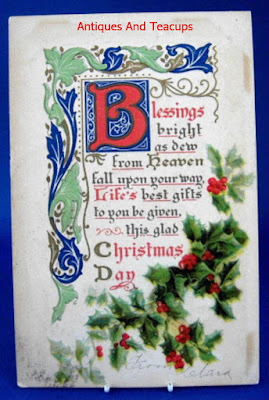 Antiques And Teacups
Blessings
bright
as dew
from Heaven
fall upon your way,
Life's best gifts
to you be given,
this glad
Christmas
Day
From